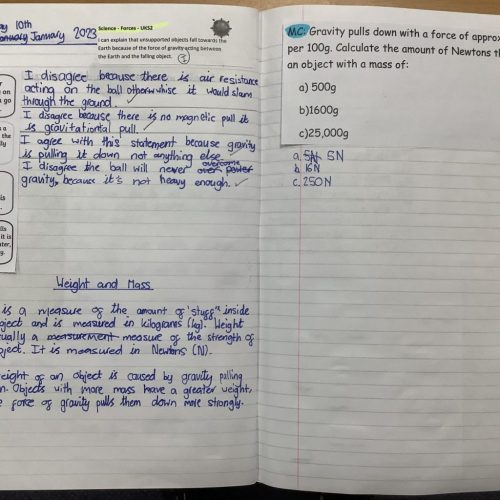 10th
January 2023
Science - Forces - UKS2
I can explain that unsupported objects fall towards the
Earth because of the force of gravity acting between
the Earth and the falling object.
I disagree because there is air resistance
acting on the ball otherwhise it would slam
through the ground.
I disagree because there is no magnetic pull it
is gravitational pull.
I agree with this statement because gravity
is pulling it down not anything else.
I disagree the ball will never overcome
gravity, because it's not heavy enough.
Weight and Mass
is a measure of the amount of "stuff" inside
ject and is measured in kilograms (kg). Weight
ually a measurement measure of the strength of
bject. It is measured in Newtons (N).
eight of an object is caused by gravity pulling
n. Objects with more mass have a greater weight,
force of gravity pulls them down more strongly.
MC: Gravity pulls down with a force of approx
per 100g. Calculate the amount of Newtons th
an object with a mass of:
a) 500g
b)1600g
c)25,000g
a. 5N 5N
b. 16N
c. 250N